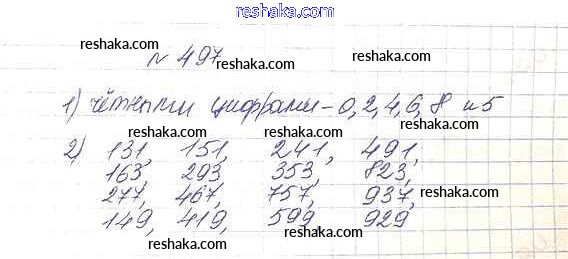 reshaka.com
№ 497
reshaka.com
reshaka.com
reshaka.com
1) чётными цифрами – 0, 2, 4, 6, 8 и 5
reshaka.com
reshaka.com
reshaka.com
2) 131, 151, 241, 491,
163 293 353, 823,
reshaka.com
reshaka.com
reshaka.com
277, 467, 757, 937,
149, 419, 599 929
reshaka.com
reshaka.com
reshaka.com